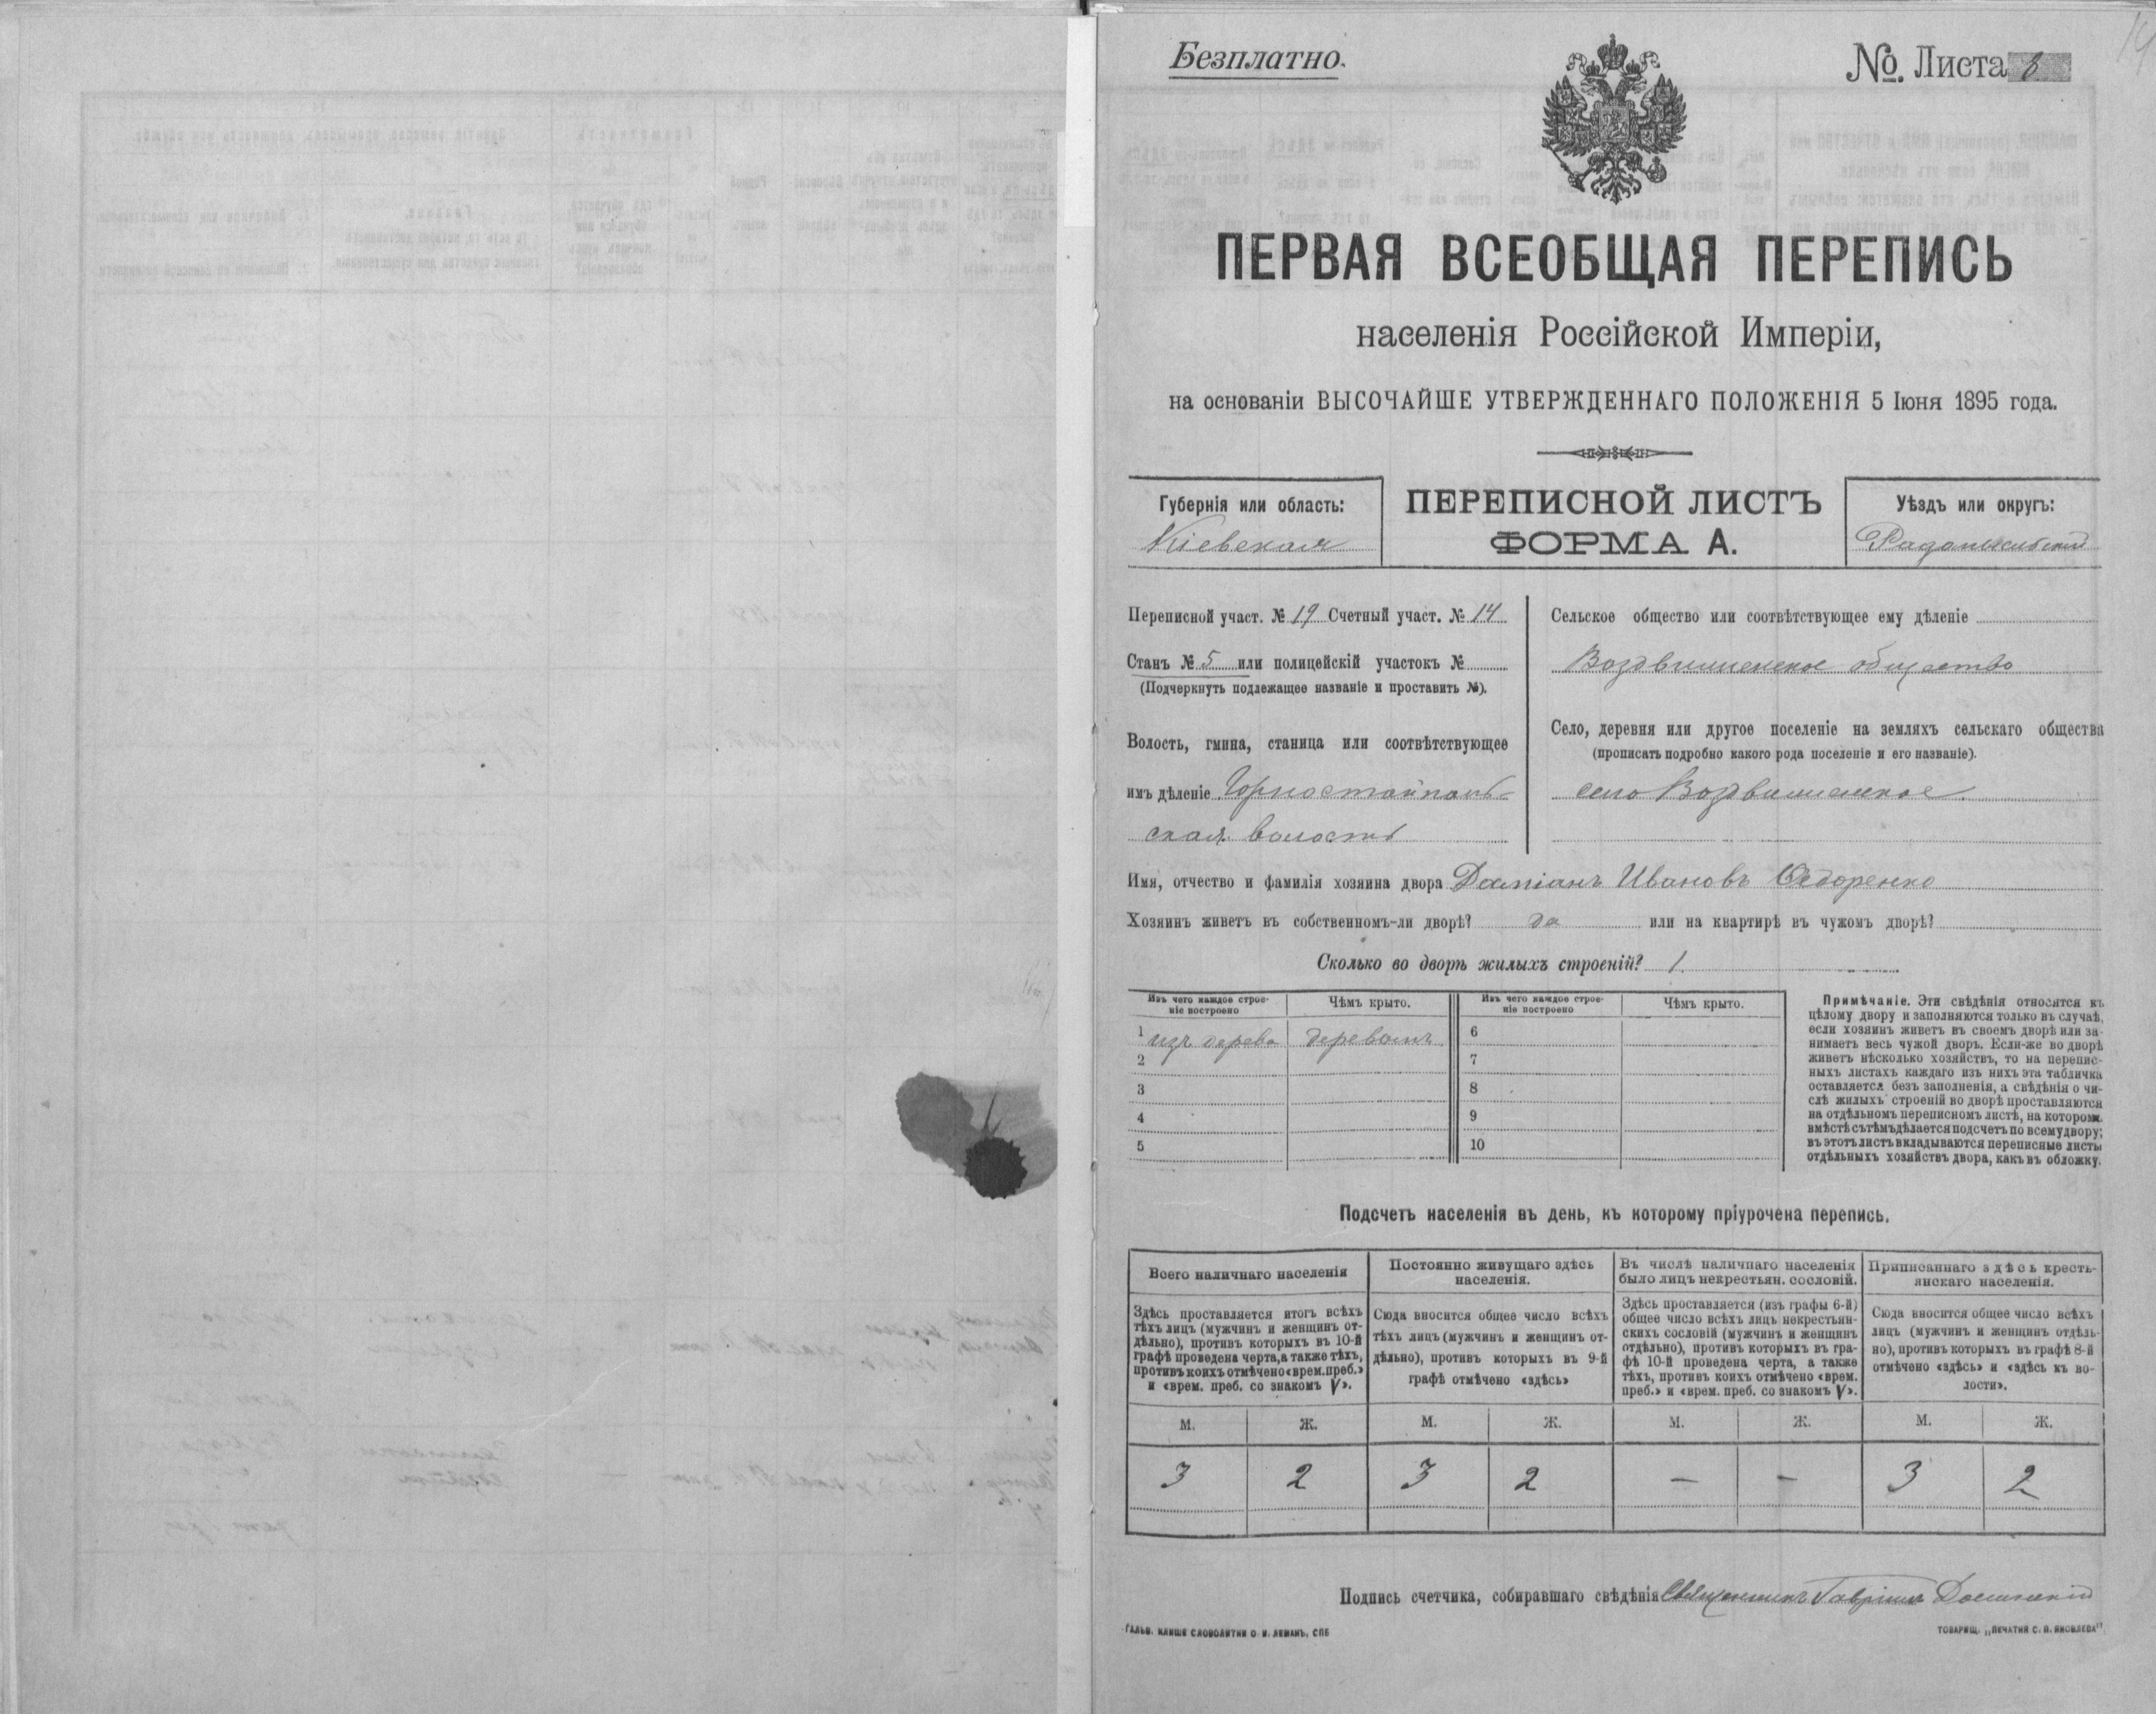 Безплатно.
№ Листа 8
ПЕРВАЯ ВСЕОБЩАЯ ПЕРЕПИСЬ
населенія Россійской Имперіи,
на основаніи ВЫСОЧАЙШЕ УТВЕРЖДЕННАГО ПОЛОЖЕНІЯ 5 Іюня 1895 года.
Губернія или область:
Кіевская
ПЕРЕПИСНОЙ ЛИСТЪ
ФОРМА А.
Уѣздъ или округъ:
Радомысльскій
Переписной участ. № 19 Счетный участ. № 14
Станъ № 5 или полицейскій участокъ №
(Подчеркнуть подлежащее названіе и проставить №).
Волость, гмина, станица или соотвѣтствующее
имъ дѣленіе Горностайполь-
ская волость
Сельское общество или соотвѣтствующее ему дѣленіе
Воздвиженское общество
Село, деревня или другое поселеніе на земляхъ сельскаго общества
(прописать подробно какого рода поселеніе и его названіе).
село Воздвиженское
Имя, отчество и фамилія хозяина двора Даміанъ Ивановъ Ѳедоренко
Хозяинъ живетъ въ собственномъ-ли дворѣ? да или на квартирѣ въ чужомъ дворѣ?
Сколько во дворѣ жилыхъ строеній? 1
Изъ чего каждое строе-
ніе построено
Чѣмъ крыто.
Изъ чего каждое строе-
ніе построено
Чѣмъ крыто.
1 изъ дерева деревомъ 6
2 7
3 8
4 9
5 10
Примѣчаніе. Эти свѣдѣнія относятся къ
цѣлому двору и заполняются только въ случаѣ,
если хозяинъ живетъ въ своемъ дворѣ или за-
нимаетъ весь чужой дворъ. Если-же во дворѣ
живетъ нѣсколько хозяйствъ, то на перепис-
ныхъ листахъ каждаго изъ нихъ эта табличка
оставляется безъ заполненія, а свѣдѣнія о чи-
слѣ жилыхъ строеній во дворѣ проставляются
на отдѣльномъ переписномъ листѣ, на которомъ
вмѣстѣ съ тѣмъ дѣлается подсчетъ по всему двору;
въ этотъ листъ вкладываются переписные листы
отдѣльныхъ хозяйствъ двора, какъ въ обложку.
Подсчетъ населенія въ день, къ которому пріурочена перепись.
Всего наличнаго населенія
Здѣсь проставляется итогъ всѣхъ
тѣхъ лицъ (мужчинъ и женщинъ от-
дѣльно), противъ которыхъ въ 10-й
графѣ проведена черта, а также тѣхъ,
противъ коихъ отмѣчено «врем. преб.»
и «врем. преб. со знакомъ V».
Постоянно живущаго здѣсь
населенія.
Сюда вносится общее число всѣхъ
тѣхъ лицъ (мужчинъ и женщинъ от-
дѣльно), противъ которыхъ въ 9-й
графѣ отмѣчено «здѣсь»
Въ числѣ наличнаго населенія
было лицъ некрестьян. сословій.
Здѣсь проставляется (изъ графы 6-й)
общее число всѣхъ лицъ некрестьян-
скихъ сословій (мужчинъ и женщинъ
отдѣльно), противъ которыхъ въ гра-
фѣ 10-й проведена черта, а также
тѣхъ, противъ коихъ отмѣчено «врем.
преб.» и «врем. преб. со знакомъ V».
Приписаннаго здѣсь кресть-
янскаго населенія.
Сюда вносится общее число всѣхъ
лицъ (мужчинъ и женщинъ отдѣль-
но), противъ которыхъ въ графѣ 8-й
отмѣчено «здѣсь» и «здѣсь къ во-
лости».
М. Ж. М. Ж. М. Ж. М. Ж.
3 2 3 2 — — 3 2
Подпись счетчика, собиравшаго свѣдѣнія Священникъ Гавріилъ
ГАЛЬВ. КЛИШЕ СЛОВОЛИТНИ О. И. ЛЕМАНЪ, СПБ
ТОВАРИЩ. „ПЕЧАТНЯ С. П. ЯКОВЛЕВА"